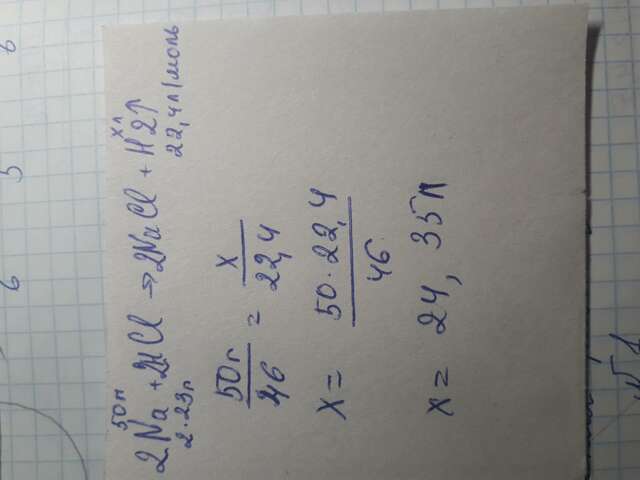 50г
xл
2Na + 2HCl → 2NaCl + H2↑
2·23г
22,4л/моль
50г/46 = x/22,4
x = 50·22,4/46
x = 24,35л
6
5
6